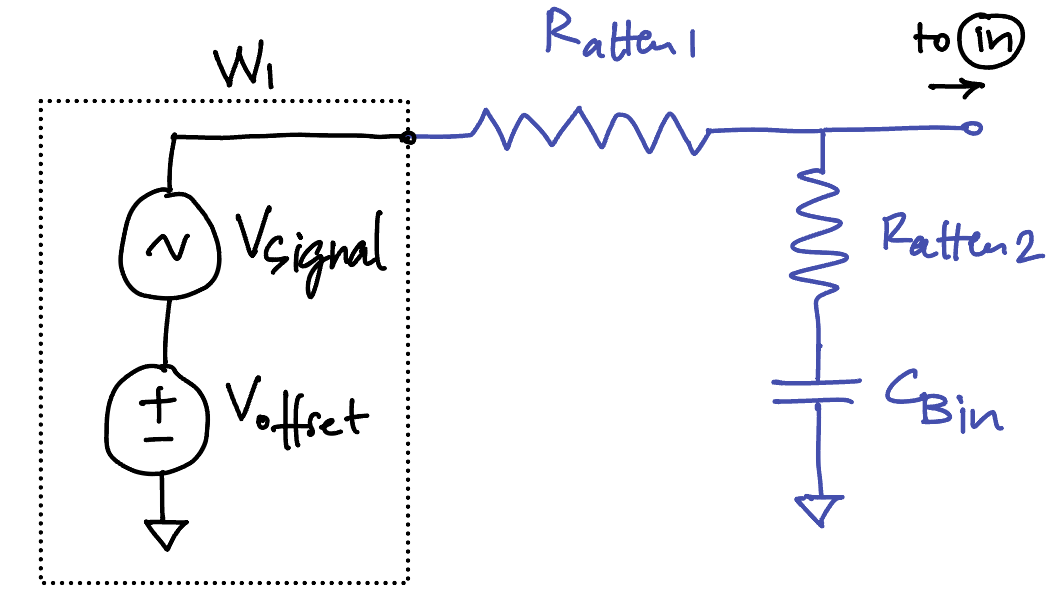 W1
Ratten1
to in
Vsignal
Ratten2
+
−
Voffset
CBin